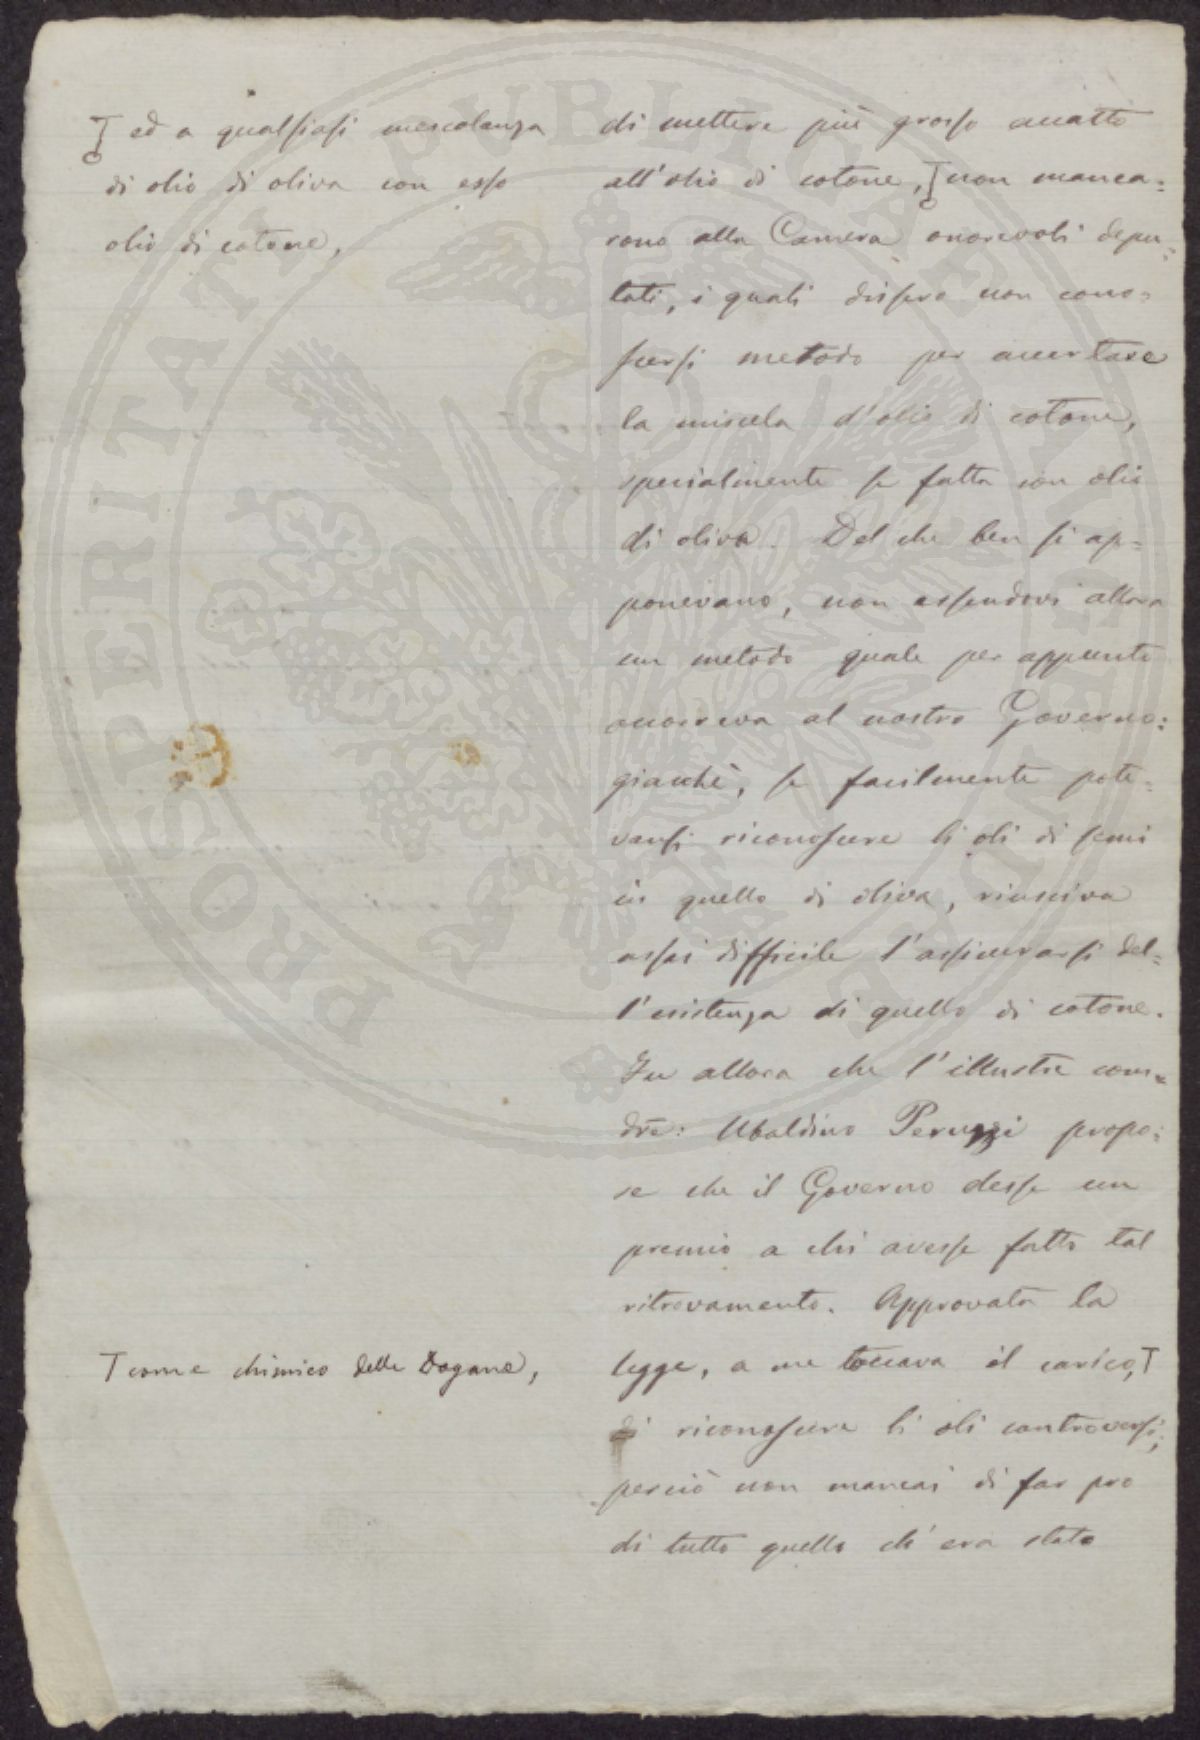 ed a qualsiasi mescolanza
di olio di oliva con esso
olio di cotone,
di mettere più grosso accatto
all'olio di cotone, non manca=
rono alla Camera onorevoli depu=
tati, i quali dissero non cono=
scersi metodo per accertare
la miscela d'olio di cotone,
specialmente se fatta con olio
di oliva. Del che ben si ap=
ponevano, non essendovi allora
un metodo quale per appunto
occorreva al nostro Governo:
giacchè, se facilmente pote=
vansi riconoscere li oli di semi
in quello di oliva, riusciva
assai difficile l'assicurarsi del=
l'esistenza di quello di cotone.
Fu allora che l'illustre com=
dre: Ubaldino Peruzzi propo=
se che il Governo desse un
premio a chi avesse fatto tal
ritrovamento. Approvata la
T come chimico delle Dogane,
legge, a me toccava il carico, T
di riconoscere li oli controversi;
perciò non mancai di far pro
di tutto quello ch'era stato
PROSPERITATI PUBLICAE AUGENDAE